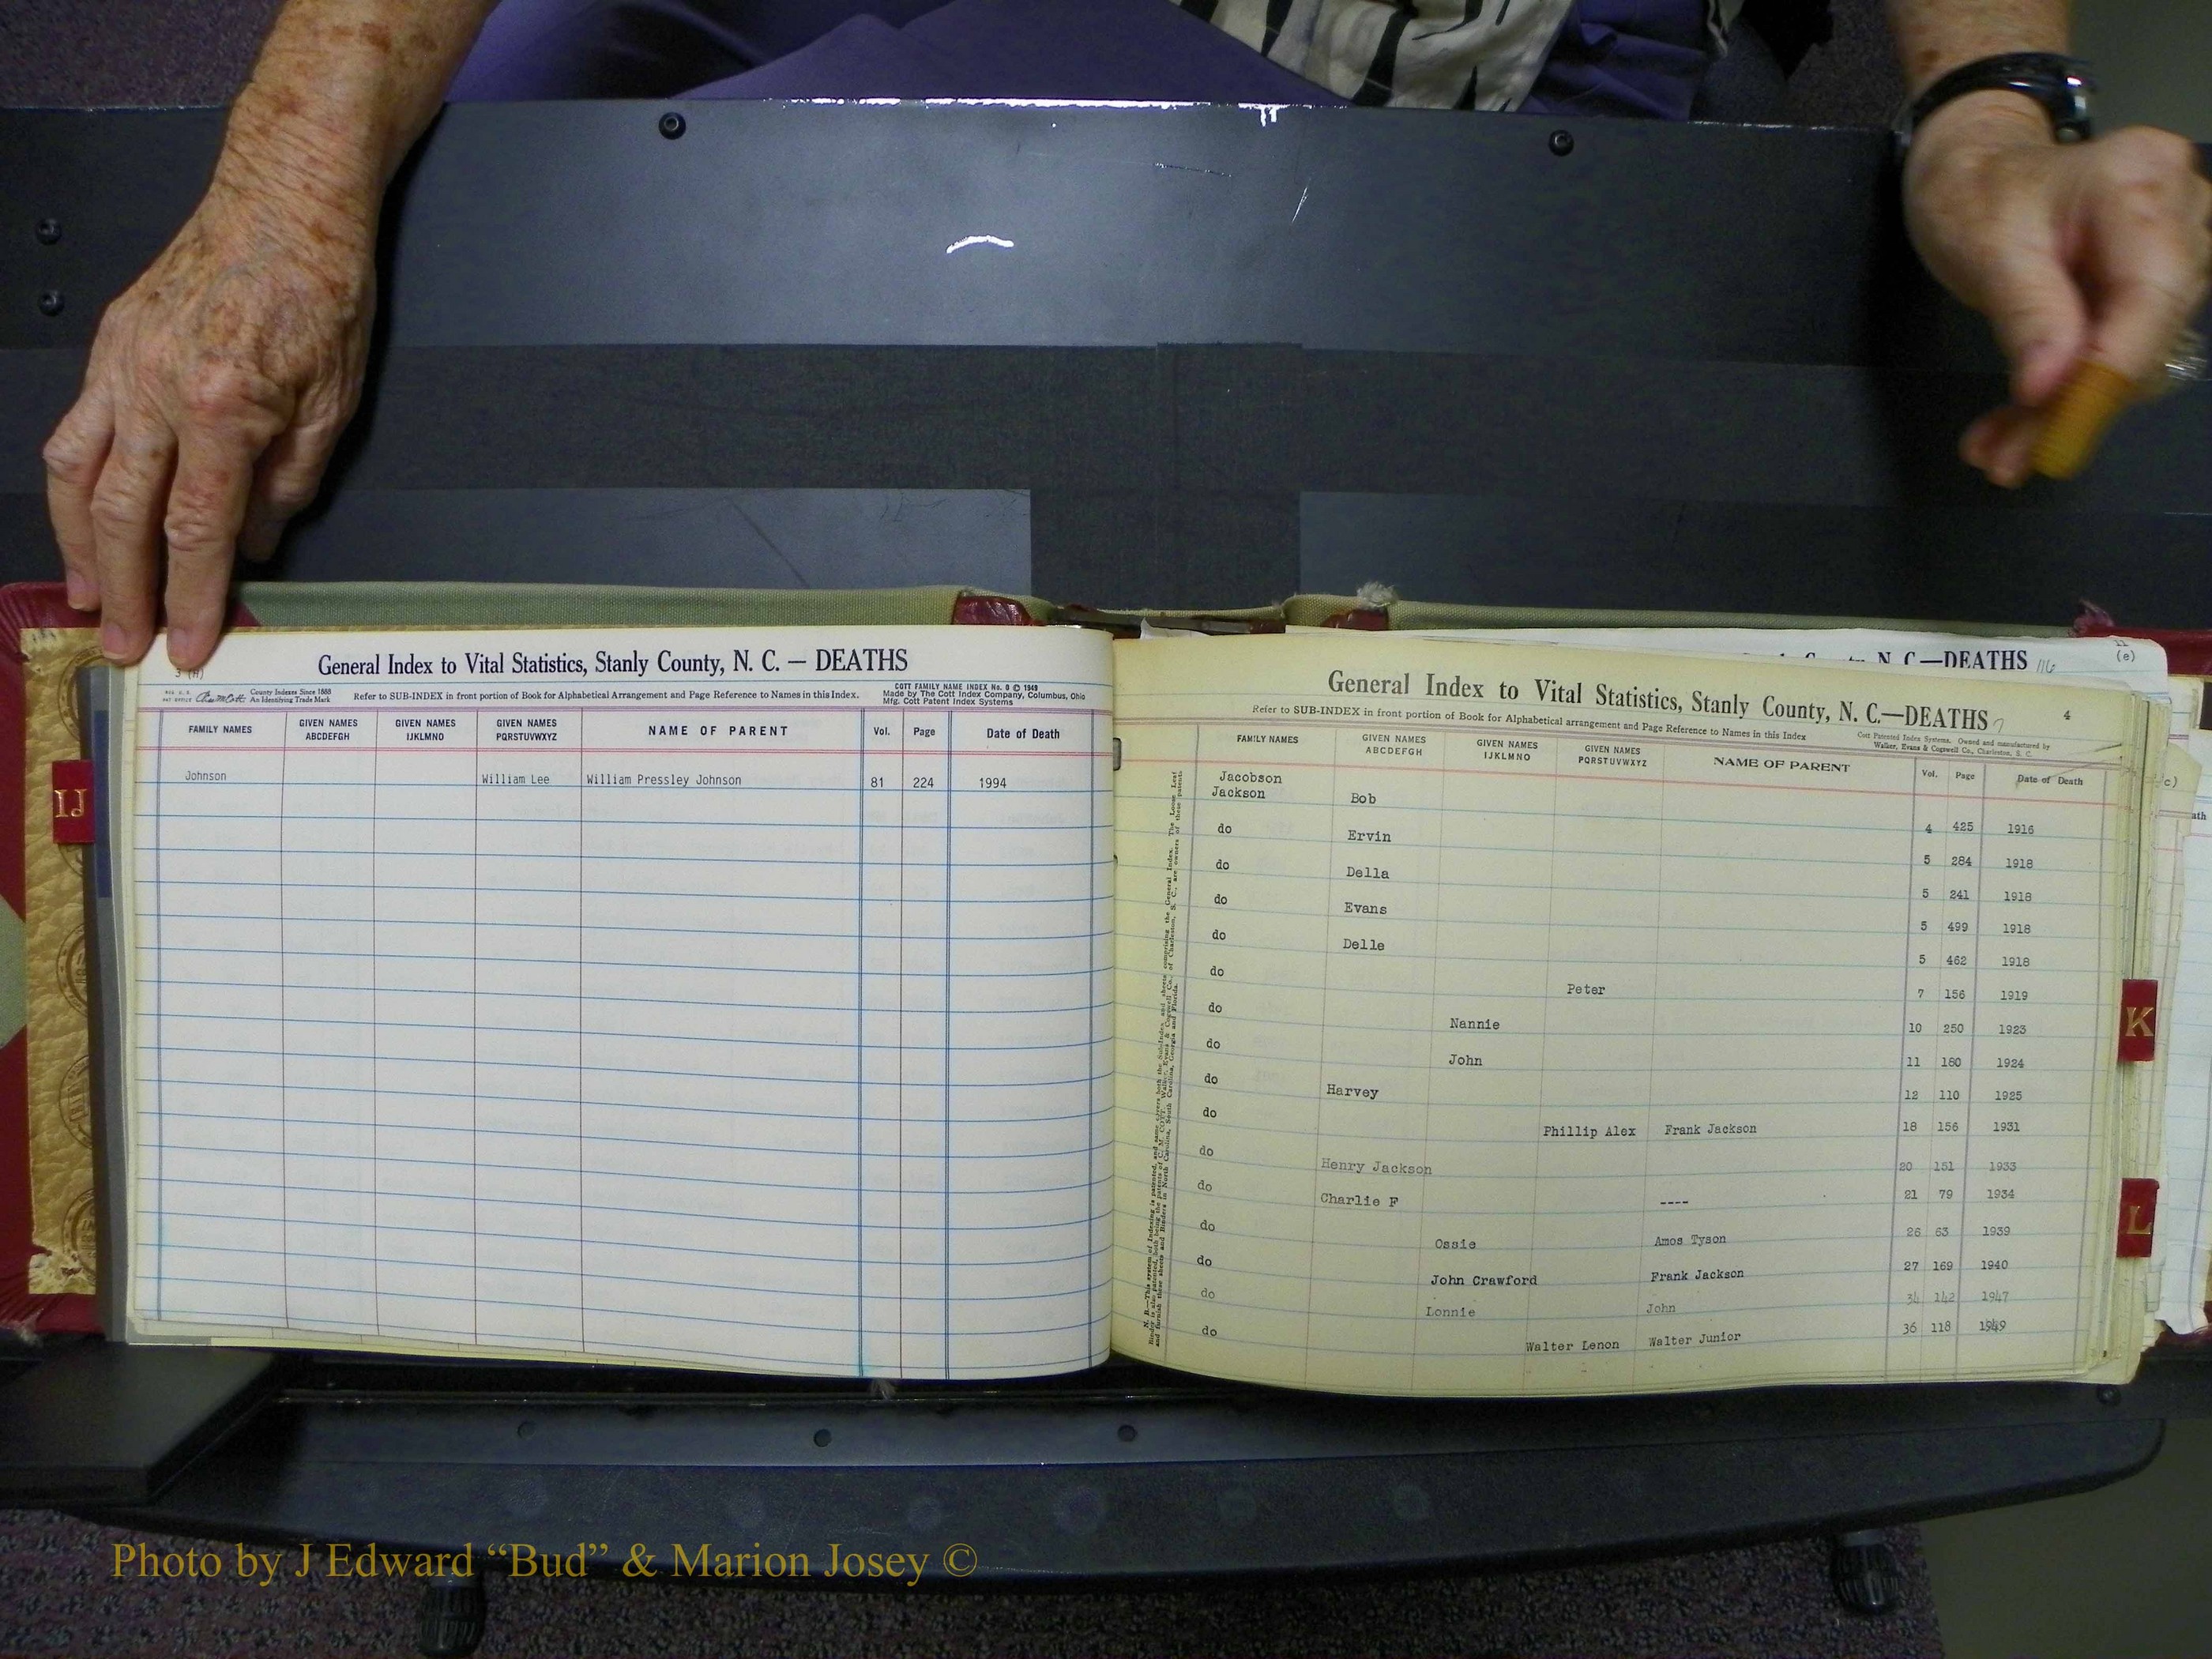 3 (H)
General Index to Vital Statistics, Stanly County, N. C. — DEATHS
County Indexes Since 1888
An Identifying Trade Mark
Refer to SUB-INDEX in front portion of Book for Alphabetical Arrangement and Page Reference to Names in this Index.
COTT FAMILY NAME INDEX No. 8 © 1949
Made by The Cott Index Company, Columbus, Ohio
Mfg. Cott Patent Index Systems
FAMILY NAMES GIVEN NAMES ABCDEFGH GIVEN NAMES IJKLMNO GIVEN NAMES PQRSTUVWXYZ NAME OF PARENT Vol. Page Date of Death
Johnson William Lee William Pressley Johnson 81 224 1994
IJ
C. — DEATHS 116
(e)
General Index to Vital Statistics, Stanly County, N. C.—DEATHS
4
Refer to SUB-INDEX in front portion of Book for Alphabetical arrangement and Page Reference to Names in this Index
Cott Patented Index Systems. Owned and manufactured by
Walker, Evans & Cogswell Co., Charleston, S. C.
FAMILY NAMES GIVEN NAMES ABCDEFGH GIVEN NAMES IJKLMNO GIVEN NAMES PQRSTUVWXYZ NAME OF PARENT Vol. Page Date of Death
Jacobson
Jackson Bob 4 425 1916
do Ervin 5 284 1918
do Della 5 241 1918
do Evans 5 499 1918
do Delle 5 462 1918
do Peter 7 156 1919
do Nannie 10 250 1923
do John 11 180 1924
do Harvey 12 110 1925
do Phillip Alex Frank Jackson 18 156 1931
do Henry Jackson 20 151 1933
do Charlie F ---- 21 79 1934
do Ossie Amos Tyson 26 63 1939
do John Crawford Frank Jackson 27 169 1940
do Lonnie John 34 142 1947
do Walter Lenon Walter Junior 36 118 1949
K
L
Photo by J Edward “Bud” & Marion Josey ©